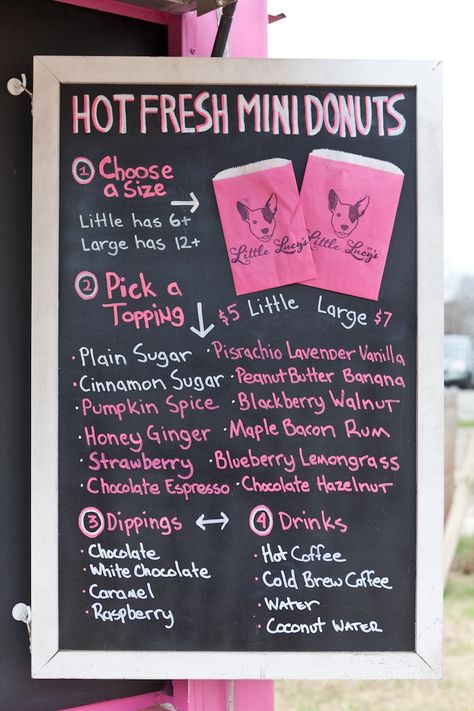 HOT FRESH MINI DONUTS
1 Choose a Size
Little has 6+
Large has 12+
Little Lucy's
Little Lucy's
2 Pick a Topping
$5 Little Large $7
· Plain Sugar
· Cinnamon Sugar
· Pumpkin Spice
· Honey Ginger
· Strawberry
· Chocolate Espresso
· Pistachio Lavender Vanilla
· Peanut Butter Banana
· Blackberry Walnut
· Maple Bacon Rum
· Blueberry Lemongrass
· Chocolate Hazelnut
3 Dippings
· Chocolate
· White Chocolate
· Caramel
· Raspberry
4 Drinks
· Hot Coffee
· Cold Brew Coffee
· Water
· Coconut Water